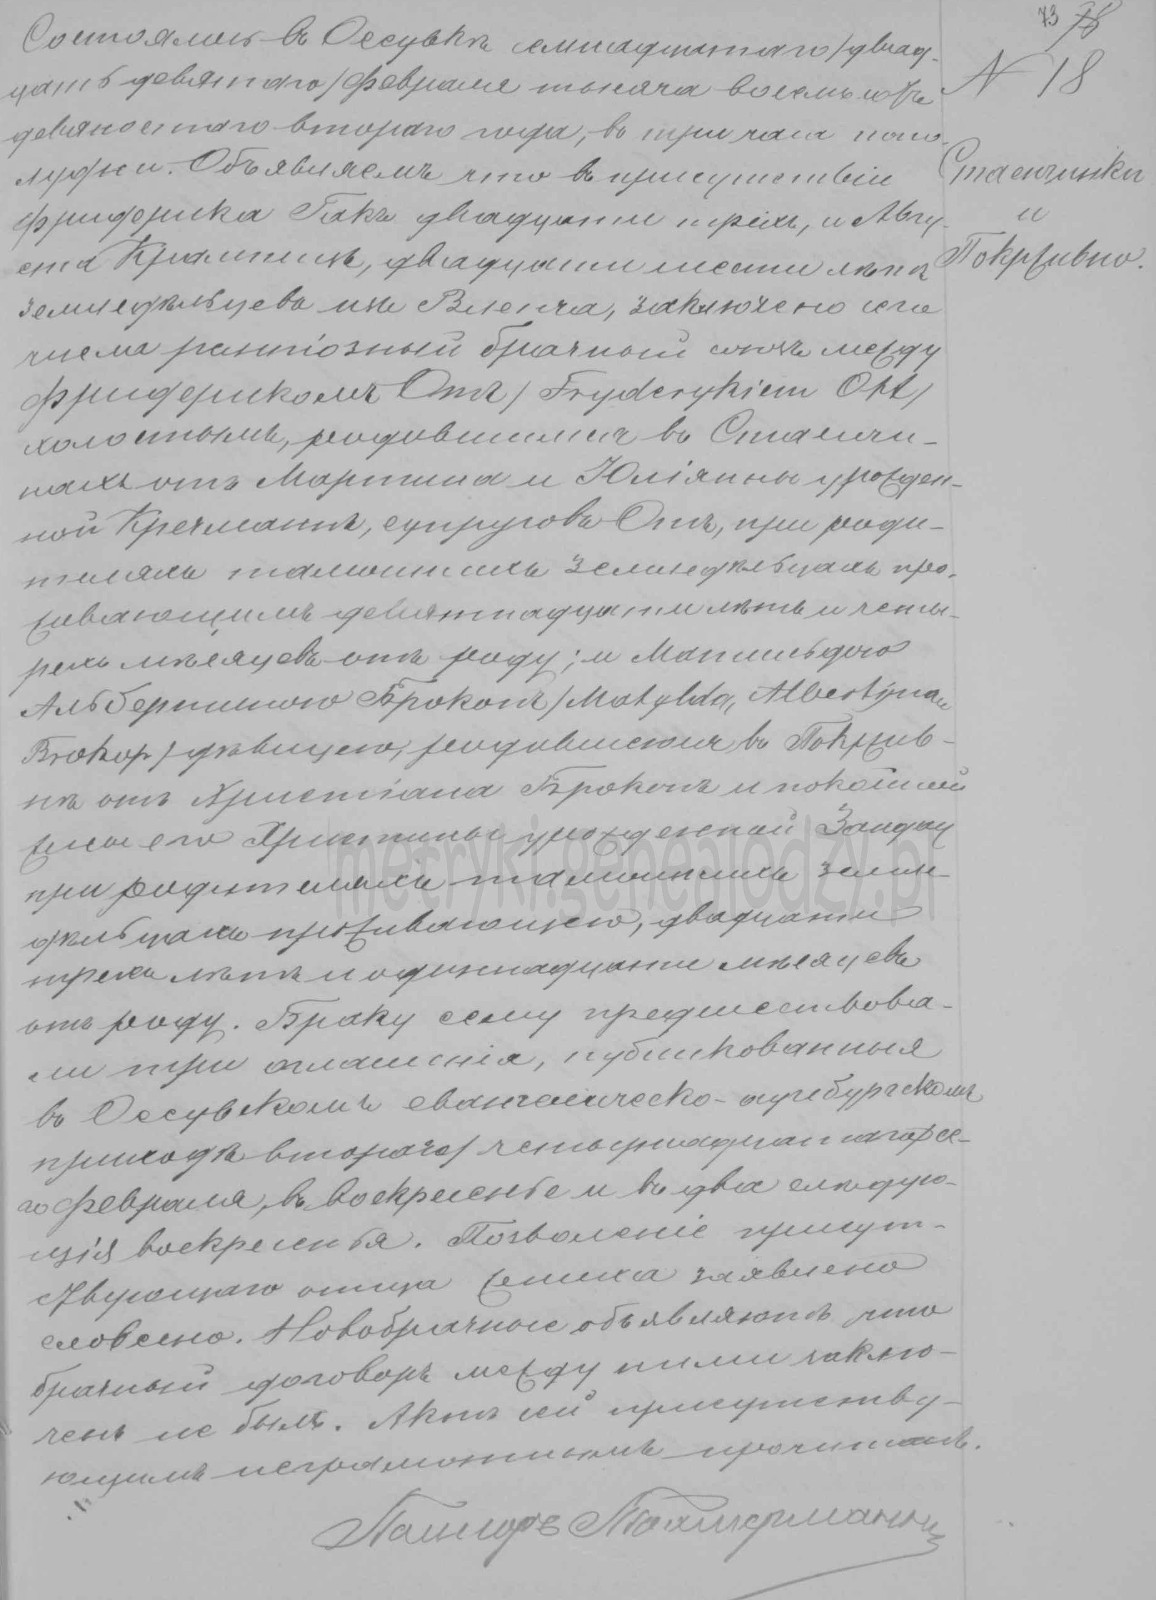 73 78
N 18
Стаенчинки
и
Покрживно.
Состоялось въ Оссувкѣ семнадцатаго/двад-
цать девятаго/февраля тысяча восемьсотъ
девяностаго втораго года, въ три часа попо-
лудни. Объявляемъ что въ присутствіи
Фридерика Гакъ двадцати трехъ, и Авгу-
ста двадцати шести лѣтъ
земледѣльцевъ изъ заключено сего
числа религіозный брачный союзъ между
Фридерикомъ Отъ/Fryderykiem Ott/
холостымъ, родившимся въ Стаенчин-
кахъ отъ Мартина и Юліянны урожден-
ной Кречманнъ, супруговъ Отъ, при роди-
теляхъ тамошнихъ земледѣльцахъ про-
живающимъ девятнадцати лѣтъ и четы-
рехъ мѣсяцевъ отъ роду; и Матильдою
Альбертиною Брокопъ/Matyldą Albertyną
Brokop/дѣвицею, родившеюся въ Покржив-
нѣ отъ Христіана Брокопъ и покойной
жены его Христины урожденной Зандау
при родителяхъ тамошнихъ земле-
дѣльцахъ проживающею, двадцати
трехъ лѣтъ и одиннадцати мѣсяцевъ
отъ роду. Браку сему предшествова-
ли три оглашенія, публикованныя
въ Оссувскомъ евангелическо-аугсбургскомъ
приходѣ втораго/четырнадцатаго/се-
го февраля, въ воскресенье и въ два слѣдую-
щія воскресенья. Позволеніе присут-
ствующаго отца жениха заявлено
словесно. Новобрачные объявляютъ что
брачный договоръ между ними заклю-
ченъ не былъ. Актъ сей присутству-
ющимъ неграмотнымъ прочитанъ.
Пасторъ
metryki.genealodzy.pl